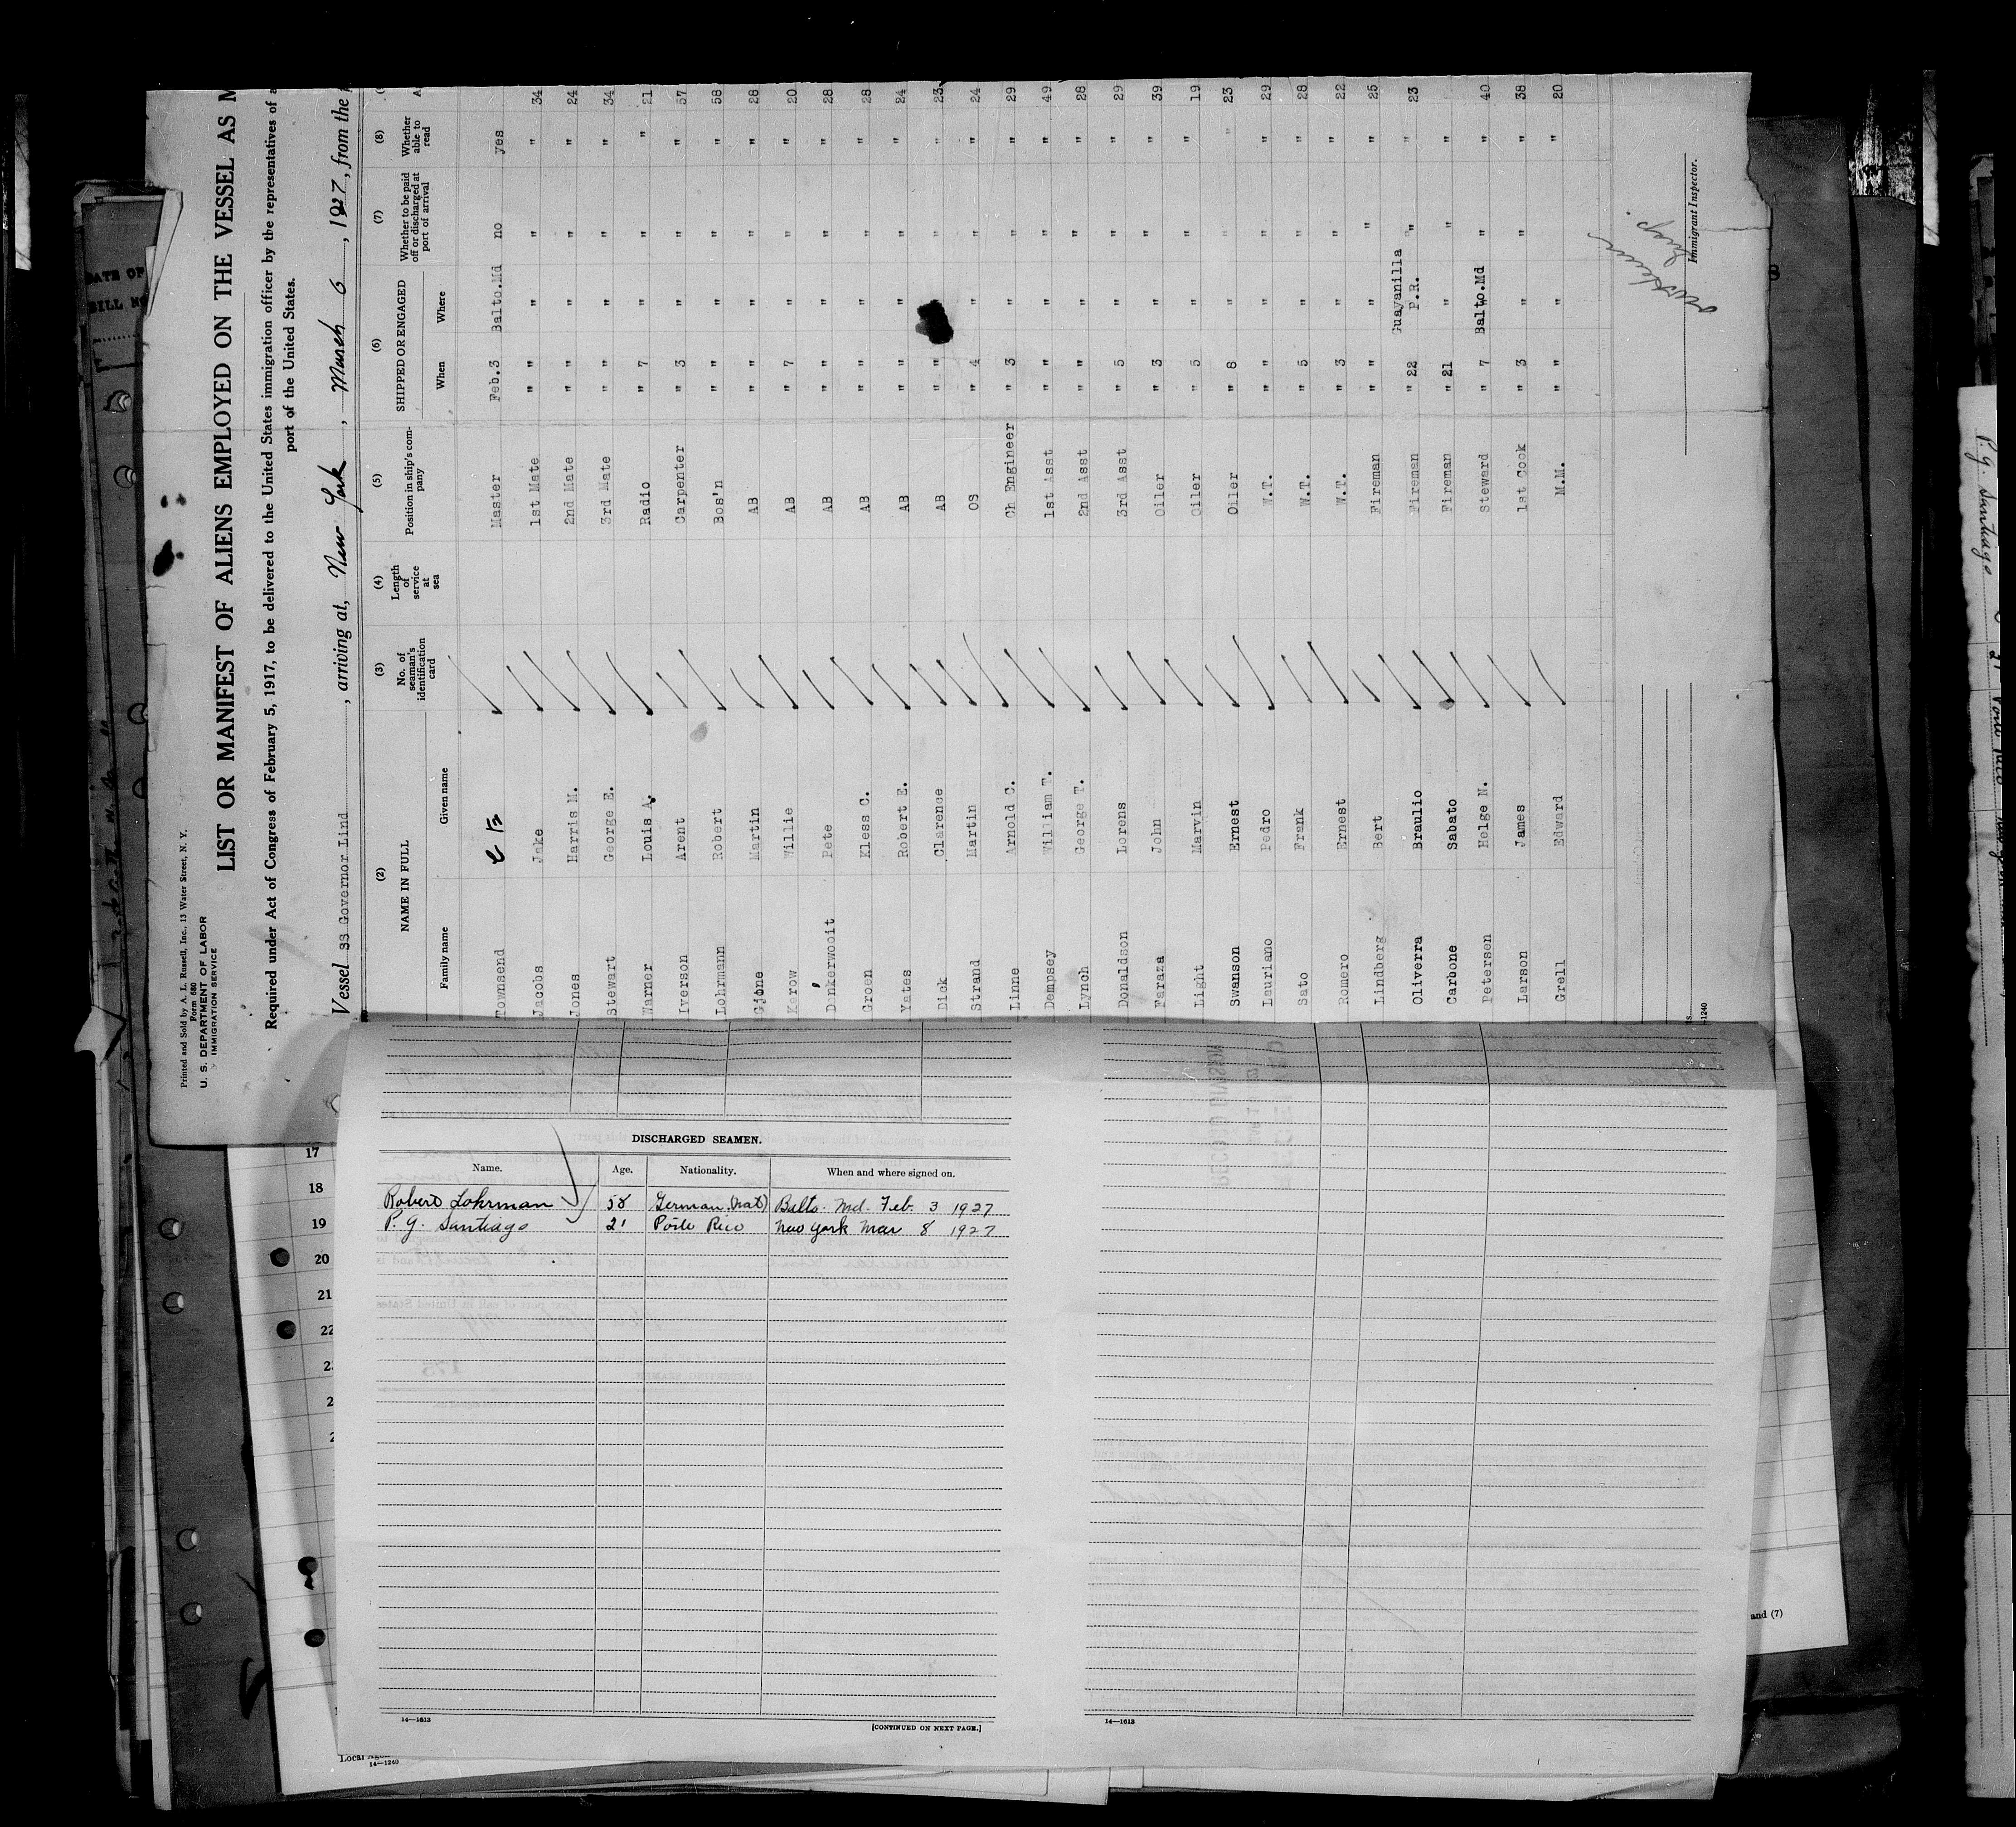 Printed and Sold by A. L. Russell, Inc., 13 Water Street, N. Y.
Form 680
U. S. DEPARTMENT OF LABOR
IMMIGRATION SERVICE
LIST OR MANIFEST OF ALIENS EMPLOYED ON THE VESSEL AS M
Required under Act of Congress of February 5, 1917, to be delivered to the United States immigration officer by the representatives of a
port of the United States.
Vessel SS Governor Lind, arriving at, New York, March 6, 1927, from the
(2) (3) (4) (5) (6) (7) (8)
NAME IN FULL No. of seaman's identification card Length of service at sea Position in ship's company SHIPPED OR ENGAGED Whether to be paid off or discharged at port of arrival Whether able to read
Family name Given name When Where
Townsend C E Master Feb.3 Balto.Md no yes
Jacobs Jake 1st Mate " " " " " 34
Jones Harris M. 2nd Mate " " " " " 24
Stewart George E. 3rd Mate " " " " " 34
Warner Louis A. Radio " 7 " " " 21
Iverson Arent Carpenter " 3 " " " 57
Lohrmann Robert Bos'n " " " " " 58
Gjone Martin AB " " " " " 28
Kerow Willie AB " 7 " " " 20
Donkerwooit Pete AB " " " " " 28
Groen Kless C. AB " " " " " 28
Yates Robert E. AB " " " " " 24
Dick Clarence AB " " " " 23
Strand Martin OS " 4 " " " 24
Linne Arnold C. Ch Engineer " 3 " " " 29
Dempsey William T. 1st Asst " " " " " 49
Lynch George T. 2nd Asst " " " " " 28
Donaldson Lorens 3rd Asst " 5 " " " 29
Faraza John Oiler " 3 " " " 39
Light Marvin Oiler " 5 " " " 19
Swanson Ernest Oiler " 8 " " " 23
Lauriano Pedro W.T. " " " " " 29
Sato Frank W.T. " 5 " " " 28
Romero Ernest W.T. " 3 " " " 22
Lindberg Bert Fireman " " " " " 25
Oliverra Braulio Fireman " 22 Guayanilla P.R. " " 23
Carbone Sabato Fireman " 21 " " "
Petersen Helge N. Steward " 7 Balto.Md " " 40
Larson James 1st Cook " 3 " " " 38
Grell Edward M.M. " " " " 20
Immigrant Inspector.
DISCHARGED SEAMEN.
Name. Age. Nationality. When and where signed on.
Robert Lohrman 58 German (Nat) Balto. Md. Feb. 3 1927
P. G. Santiago 21 Porto Rico New York Mar 8 1927
14—1613
[CONTINUED ON NEXT PAGE.]
14—1613
17
18
19
20
21
22
Local
14—1240
and (7)
DATE OF
BILL
P. G. Santiago